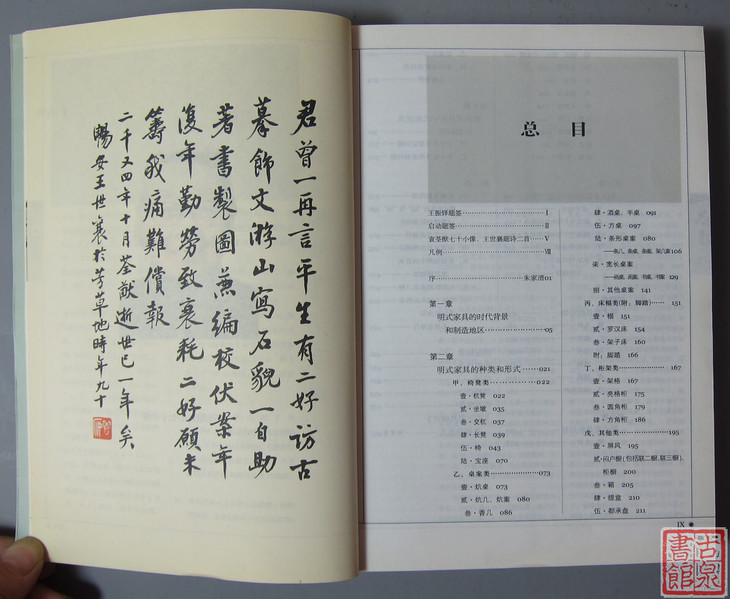 君曾一再言平生有二好访古
摹饰文游山写石貌一自助
著書製圖兼编校伏案年
復年勤勞致衰耗二好願未
籌我痛難償報
二千又四年十月荃猷逝世已一年矣
暢安王世襄於芳草地時年九十
总 目
王振铎题签 Ⅰ
启功题签 Ⅱ
袁荃猷七十小像、王世襄题诗二首 Ⅴ
凡例 Ⅶ
序 朱家溍01
第一章
明式家具的时代背景
和制造地区 05
第二章
明式家具的种类和形式 021
甲、椅凳类 022
壹·杌凳 022
贰·坐墩 035
叁·交杌 037
肆·长凳 039
伍·椅 043
陆·宝座 070
乙、桌案类 073
壹·炕桌 073
贰·炕几、炕案 080
叁·香几 086
肆·酒桌、半桌 091
伍·方桌 097
陆·条形桌案 080
——条几、条桌、条案、架几案106
柒·宽长桌案
——画桌、画案、书桌、书案 129
捌·其他桌案 141
丙、床榻类(附:脚踏) 151
壹·榻 151
贰·罗汉床 154
叁·架子床 160
附:脚踏 166
丁、柜架类 167
壹·架格 167
贰·亮格柜 175
叁·圆角柜 179
肆·方角柜 186
戊、其他类 195
壹·屏风 195
贰·闷户橱(包括联二橱、联三橱)、
柜橱 200
叁·箱 205
肆·提盒 210
伍·都承盘 211
IX
古泉
書館